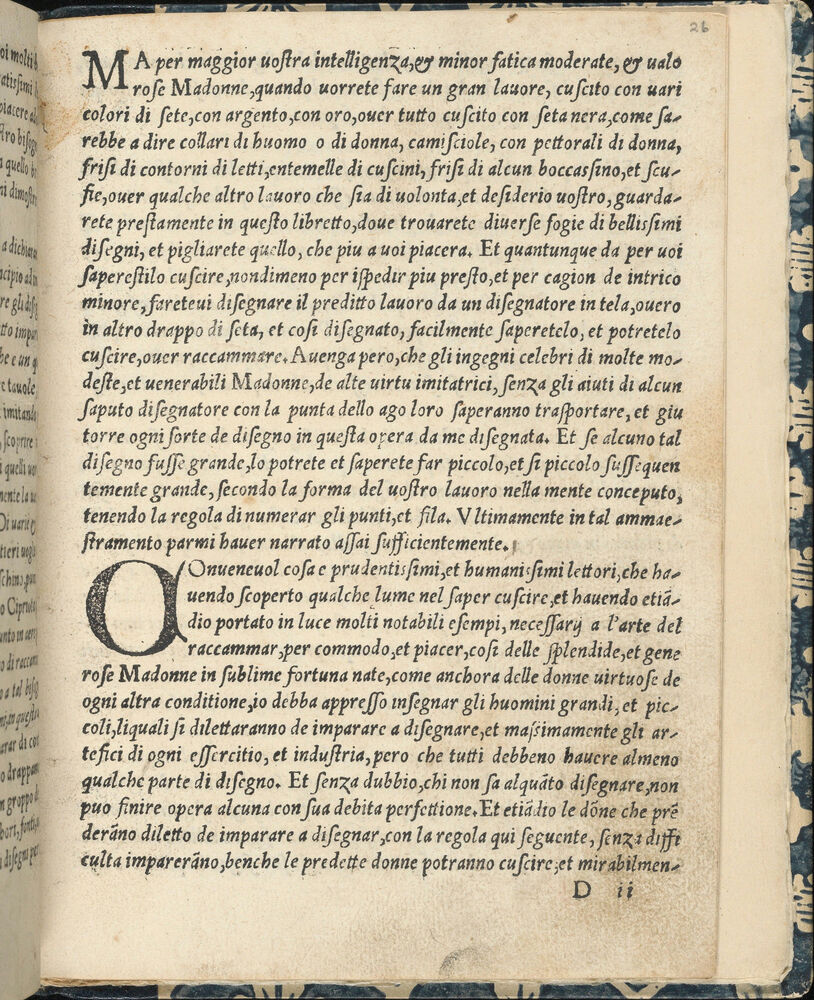 26
MA per maggior uoſtra intelligenza,& minor fatica moderate, & ualo
roſe Madonne,quando uorrete fare un gran lauore, cuſcito con uari
colori di ſete,con argento,con oro,ouer tutto cuſcito con ſeta nera,come ſa-
rebbe a dire collari di huomo o di donna, camiſciole, con pettorali di donna,
friſi di contorni di letti,entemelle di cuſcini, friſi di alcun boccaſſino,et ſcu-
fie,ouer qualche altro lauoro che ſia di uolonta,et deſiderio uoſtro,guarda-
rete preſtamente in queſto libretto,doue trouarete diuerſe fogie di belliſſimi
diſegni, et pigliarete quello, che piu a uoi piacera. Et quantunque da per uoi
ſapereſtilo cuſcire,nondimeno per iſpedir piu preſto,et per cagion de intrico
minore,fareteui diſegnare il preditto lauoro da un diſegnatore in tela,ouero
in altro drappo di ſeta, et coſi diſegnato, facilmente ſaperetelo, et potretelo
cuſcire,ouer raccammare.Auenga pero,che gli ingegni celebri di molte mo-
deſte,et uenerabili Madonne,de alte uirtu imitatrici, ſenza gli aiuti di alcun
ſaputo diſegnatore con la punta dello ago loro ſaperanno traſportare, et giu
torre ogni ſorte de diſegno in queſta opera da me diſegnata. Et ſe alcuno tal
diſegno fuſſe grande,lo potrete et ſaperete far piccolo,et ſi piccolo ſuſſequen
temente grande, ſecondo la forma del uoſtro lauoro nella mente conceputo,
tenendo la regola di numerar gli punti,et fila. Vltimamente in tal ammae-
ſtramento parmi hauer narrato aſſai ſufficientemente.
COnueneuol coſa e prudentiſſimi,et humaniſſimi lettori,che ha-
uendo ſcoperto qualche lume nel ſaper cuſcire,et hauendo etiā-
dio portato in luce molti notabili eſempi, neceſſarij a l'arte del
raccammar,per commodo,et piacer,coſi delle ſplendide,et gene
roſe Madonne in ſublime fortuna nate,come anchora delle donne uirtuoſe de
ogni altra conditione,io debba appreſſo inſegnar gli huomini grandi,et pic-
coli,liquali ſi dilettaranno de imparare a diſegnare,et maſſimamente gli ar-
tefici di ogni eſſercitio, et induſtria,pero che tutti debbeno hauere almeno
qualche parte di diſegno. Et ſenza dubbio,chi non ſa alquāto diſegnare,non
puo finire opera alcuna con ſua debita perfettione.Et etiādio le dōne che prē
derāno diletto de imparare a diſegnar,con la regola qui ſeguente, ſenza diffi
culta imparerāno,benche le predette donne potranno cuſcire,et mirabilmen-
D ii